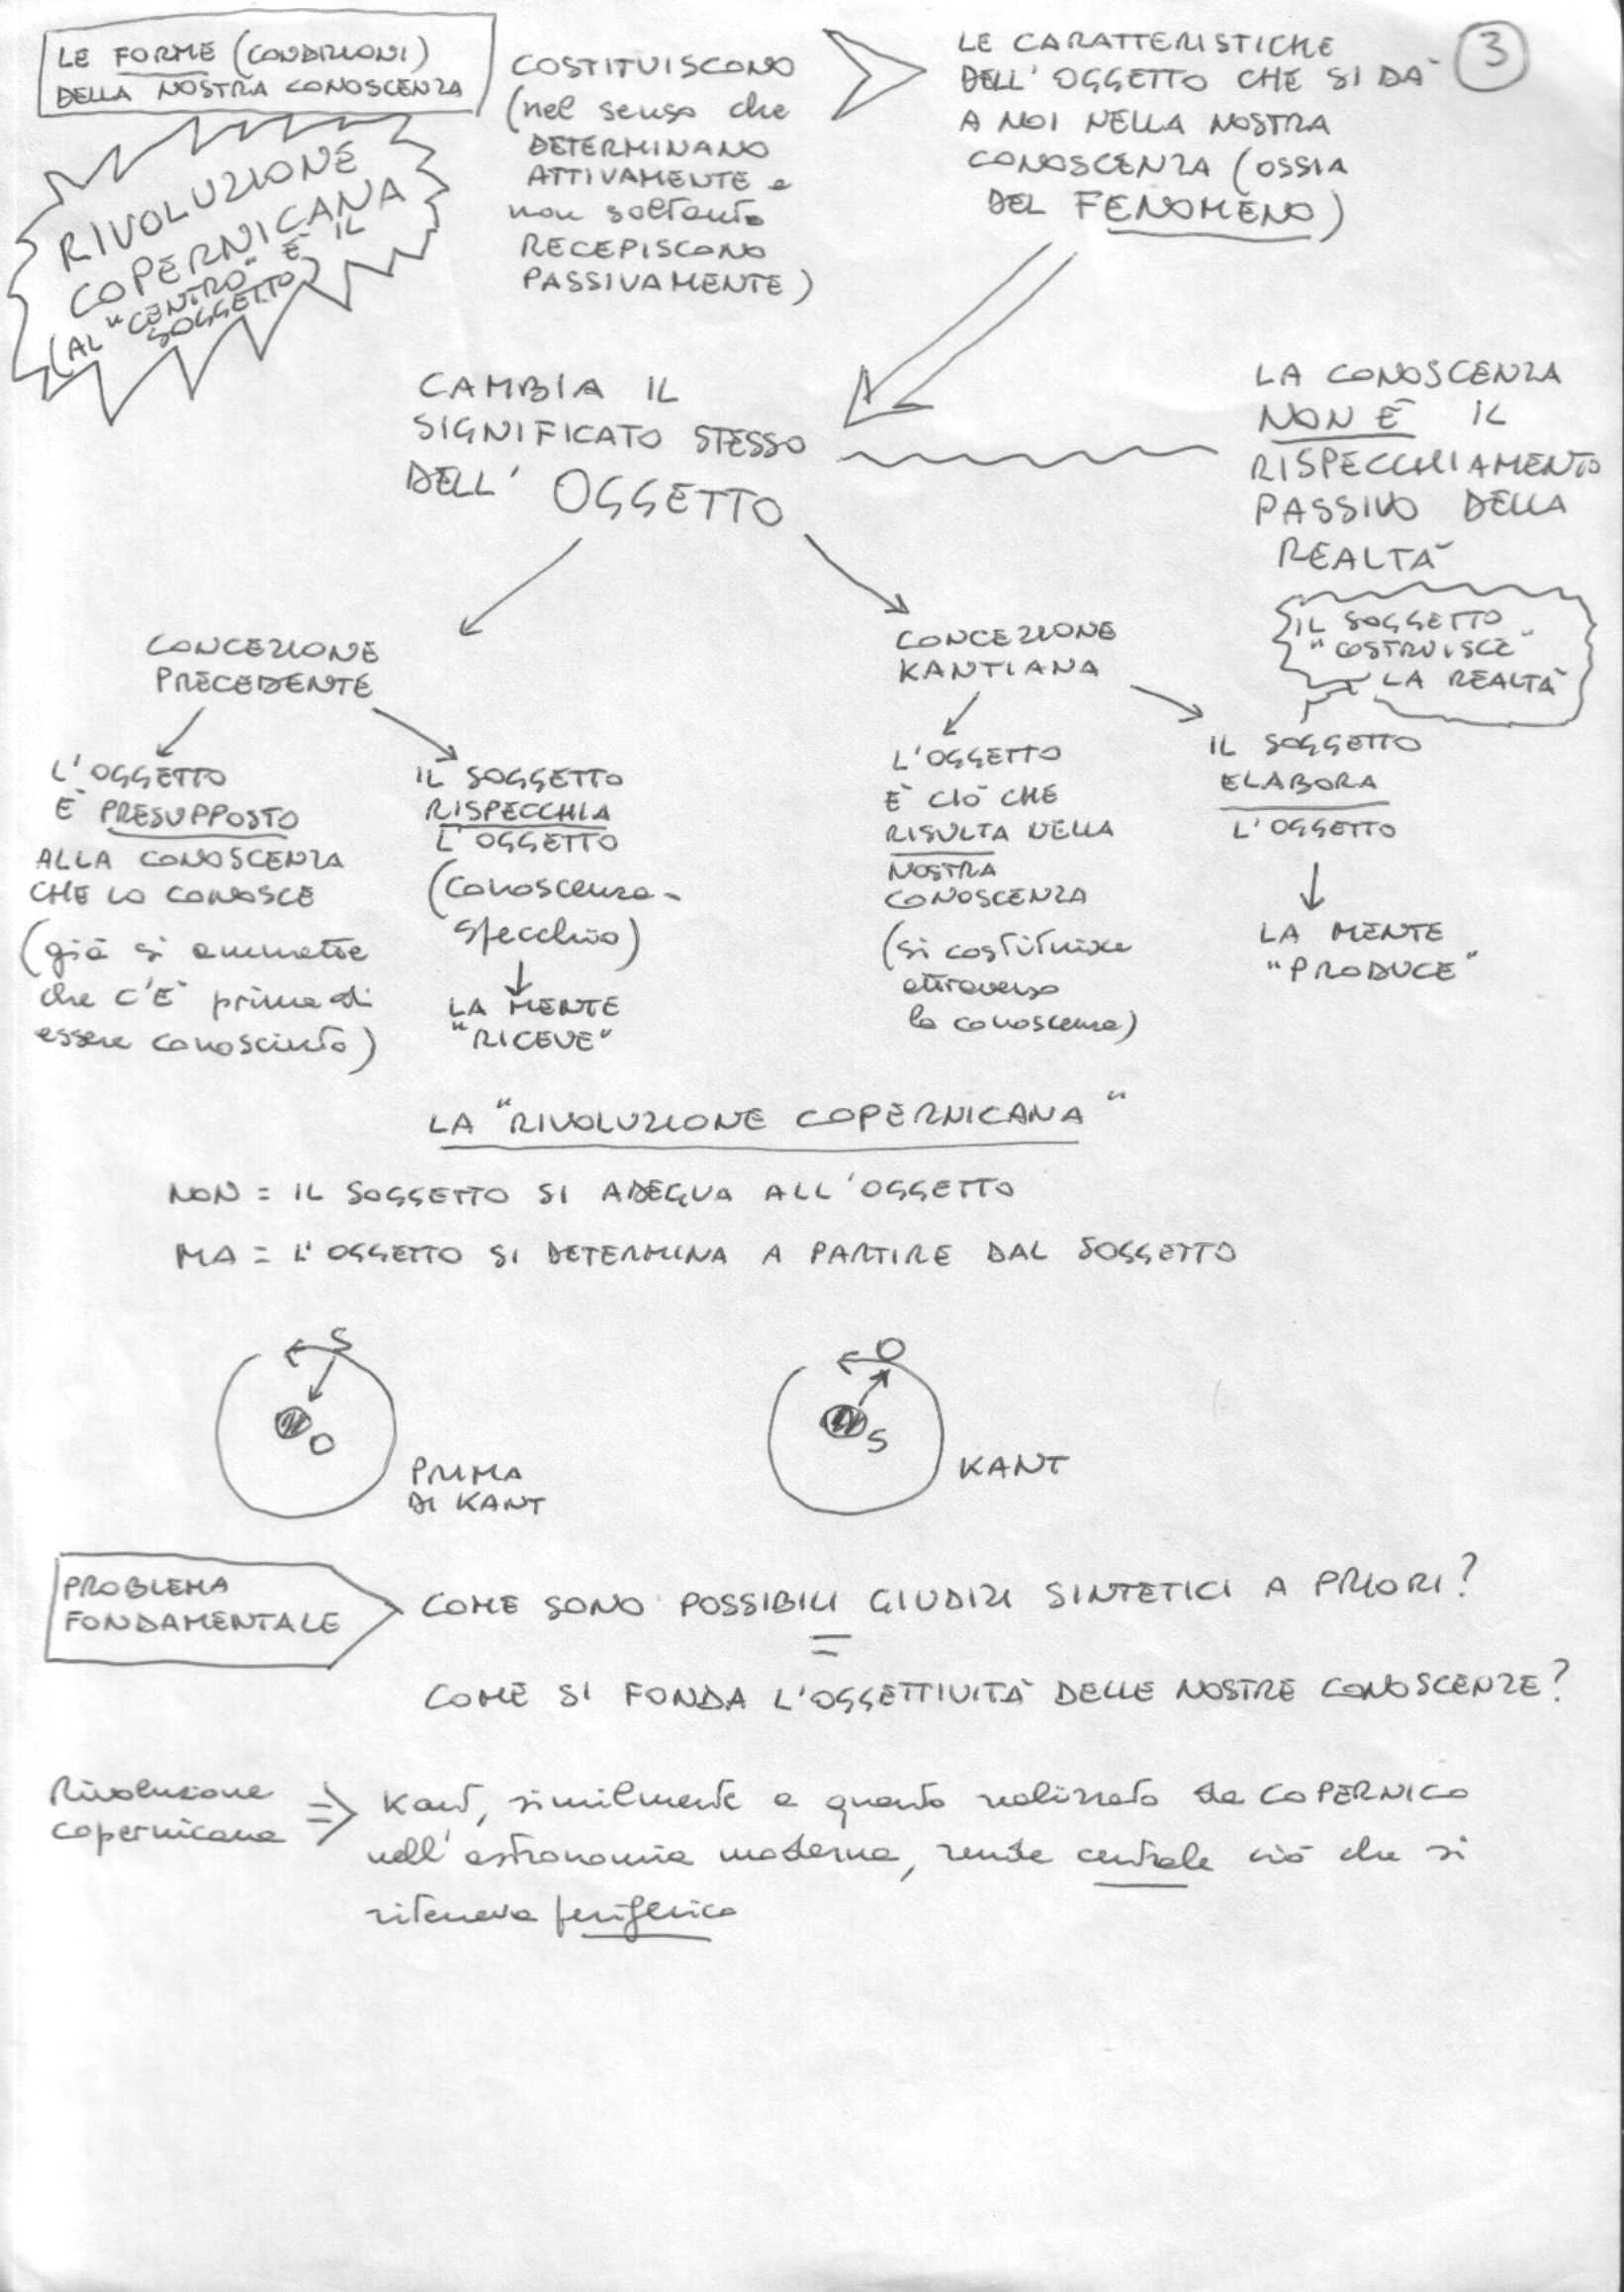 LE FORME (CONDIZIONI)
DELLA NOSTRA CONOSCENZA
COSTITUISCONO
(nel senso che
DETERMINANO
ATTIVAMENTE e
non soltanto
RECEPISCONO
PASSIVAMENTE)
LE CARATTERISTICHE
DELL'OGGETTO CHE SI DÀ
A NOI NELLA NOSTRA
CONOSCENZA (OSSIA
DEL FENOMENO)
3
RIVOLUZIONE
COPERNICANA
(AL "CENTRO" È IL
SOGGETTO)
CAMBIA IL
SIGNIFICATO STESSO
DELL' OGGETTO
LA CONOSCENZA
NON È IL
RISPECCHIAMENTO
PASSIVO DELLA
REALTÀ
IL SOGGETTO
"COSTRUISCE"
LA REALTÀ
CONCEZIONE
PRECEDENTE
L'OGGETTO
È PRESUPPOSTO
ALLA CONOSCENZA
CHE LO CONOSCE
(già si ammette
che C'È prima di
essere conosciuto)
IL SOGGETTO
RISPECCHIA
L'OGGETTO
(conoscenza-
specchio)
LA MENTE
"RICEVE"
CONCEZIONE
KANTIANA
L'OGGETTO
È CIÒ CHE
RISULTA NELLA
NOSTRA
CONOSCENZA
(si costituisce
attraverso
la conoscenza)
IL SOGGETTO
ELABORA
L'OGGETTO
LA MENTE
"PRODUCE"
LA "RIVOLUZIONE COPERNICANA"
NON = IL SOGGETTO SI ADEGUA ALL'OGGETTO
MA = L'OGGETTO SI DETERMINA A PARTIRE DAL SOGGETTO
S
O
PRIMA
DI KANT
O
S
KANT
PROBLEMA
FONDAMENTALE
COME SONO POSSIBILI GIUDIZI SINTETICI A PRIORI?
=
COME SI FONDA L'OGGETTIVITÀ DELLE NOSTRE CONOSCENZE?
Rivoluzione
copernicana
=> Kant, similmente a quanto realizzato da COPERNICO
nell'astronomia moderna, rende centrale ciò che si
riteneva periferico